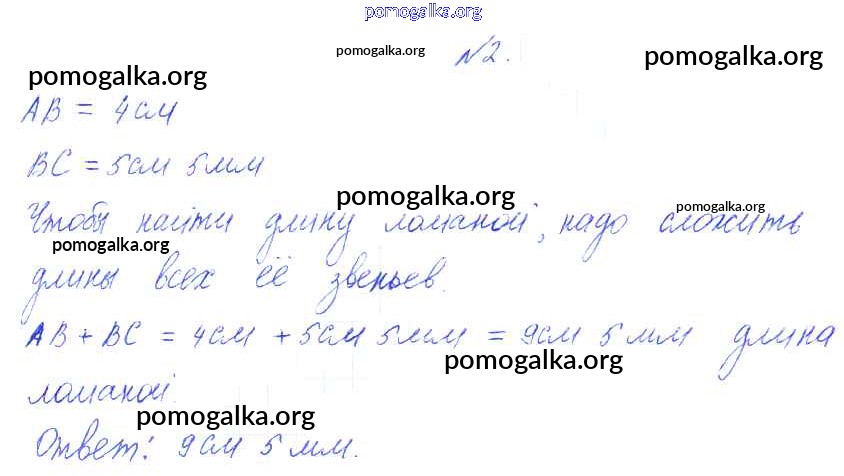 pomogalka.org
pomogalka.org №2. pomogalka.org
pomogalka.org
AB = 4см
BC = 5см 5мм
pomogalka.org pomogalka.org
Чтобы найти длину ломаной, надо сложить
pomogalka.org
длины всех её звеньев.
AB + BC = 4см + 5см 5мм = 9см 5мм длина
pomogalka.org
ломаной.
pomogalka.org
Ответ: 9см 5мм.